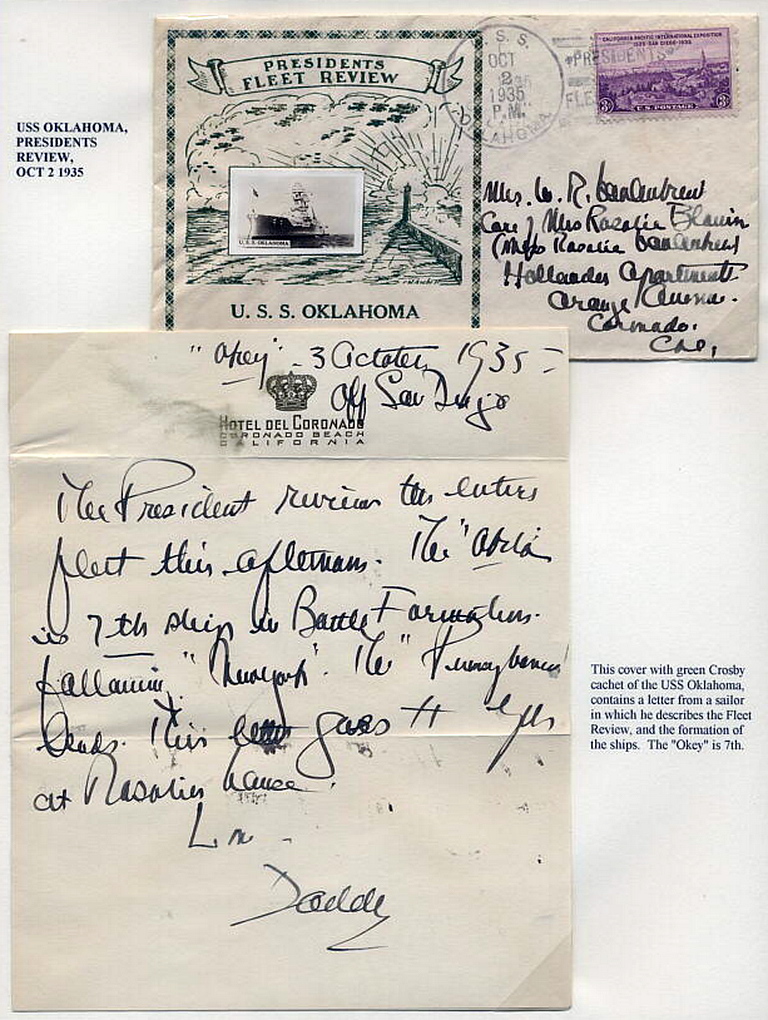 USS OKLAHOMA,
PRESIDENTS
REVIEW,
OCT 2 1935
PRESIDENTS
FLEET REVIEW
U.S.S. OKLAHOMA
U. S. S. OKLAHOMA
U. S. S.
OCT
2
1935
P.M.
OKLAHOMA
PRESIDENTS
FLE
CALIFORNIA PACIFIC INTERNATIONAL EXPOSITION
1935 · SAN DIEGO · 1935
3¢ U.S. POSTAGE 3¢
Mrs. W. R. VanAntwerp
Care of Mrs Rosalie Blauin
(Miss Rosalie VanAntwerp)
Hollander Apartments
Orange Avenue.
Coronado.
Cal,
"Okey" - 3 October 1935 -
Off San Diego
HOTEL DEL CORONADO
CORONADO BEACH
CALIFORNIA
The President reviews the entire
fleet this afternoon. The "Okla
is 7th ship in Battle Formation.
following "New York". The "Pennsylvania
leads. This letter goes to you
at Rosalies house.
Daddy
This cover with green Crosby
cachet of the USS Oklahoma,
contains a letter from a sailor
in which he describes the Fleet
Review, and the formation of
the ships. The "Okey" is 7th.